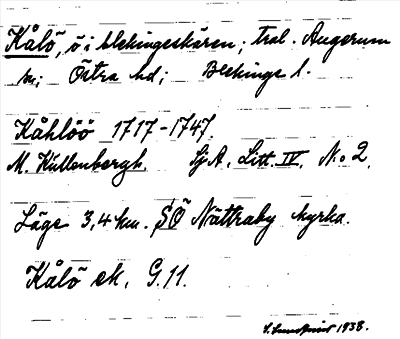 Kålö, ö i blekingeskären; tral. Augerum
sn; Östra hd; Blekinge l.
Kåhlöö 1717-1747.
M. Kullenbergh. Sj A, Litt. IV, No 2.
Läge 3,4 km. SÖ Nättraby kyrka.
Kålö ek. G.11.
1938.